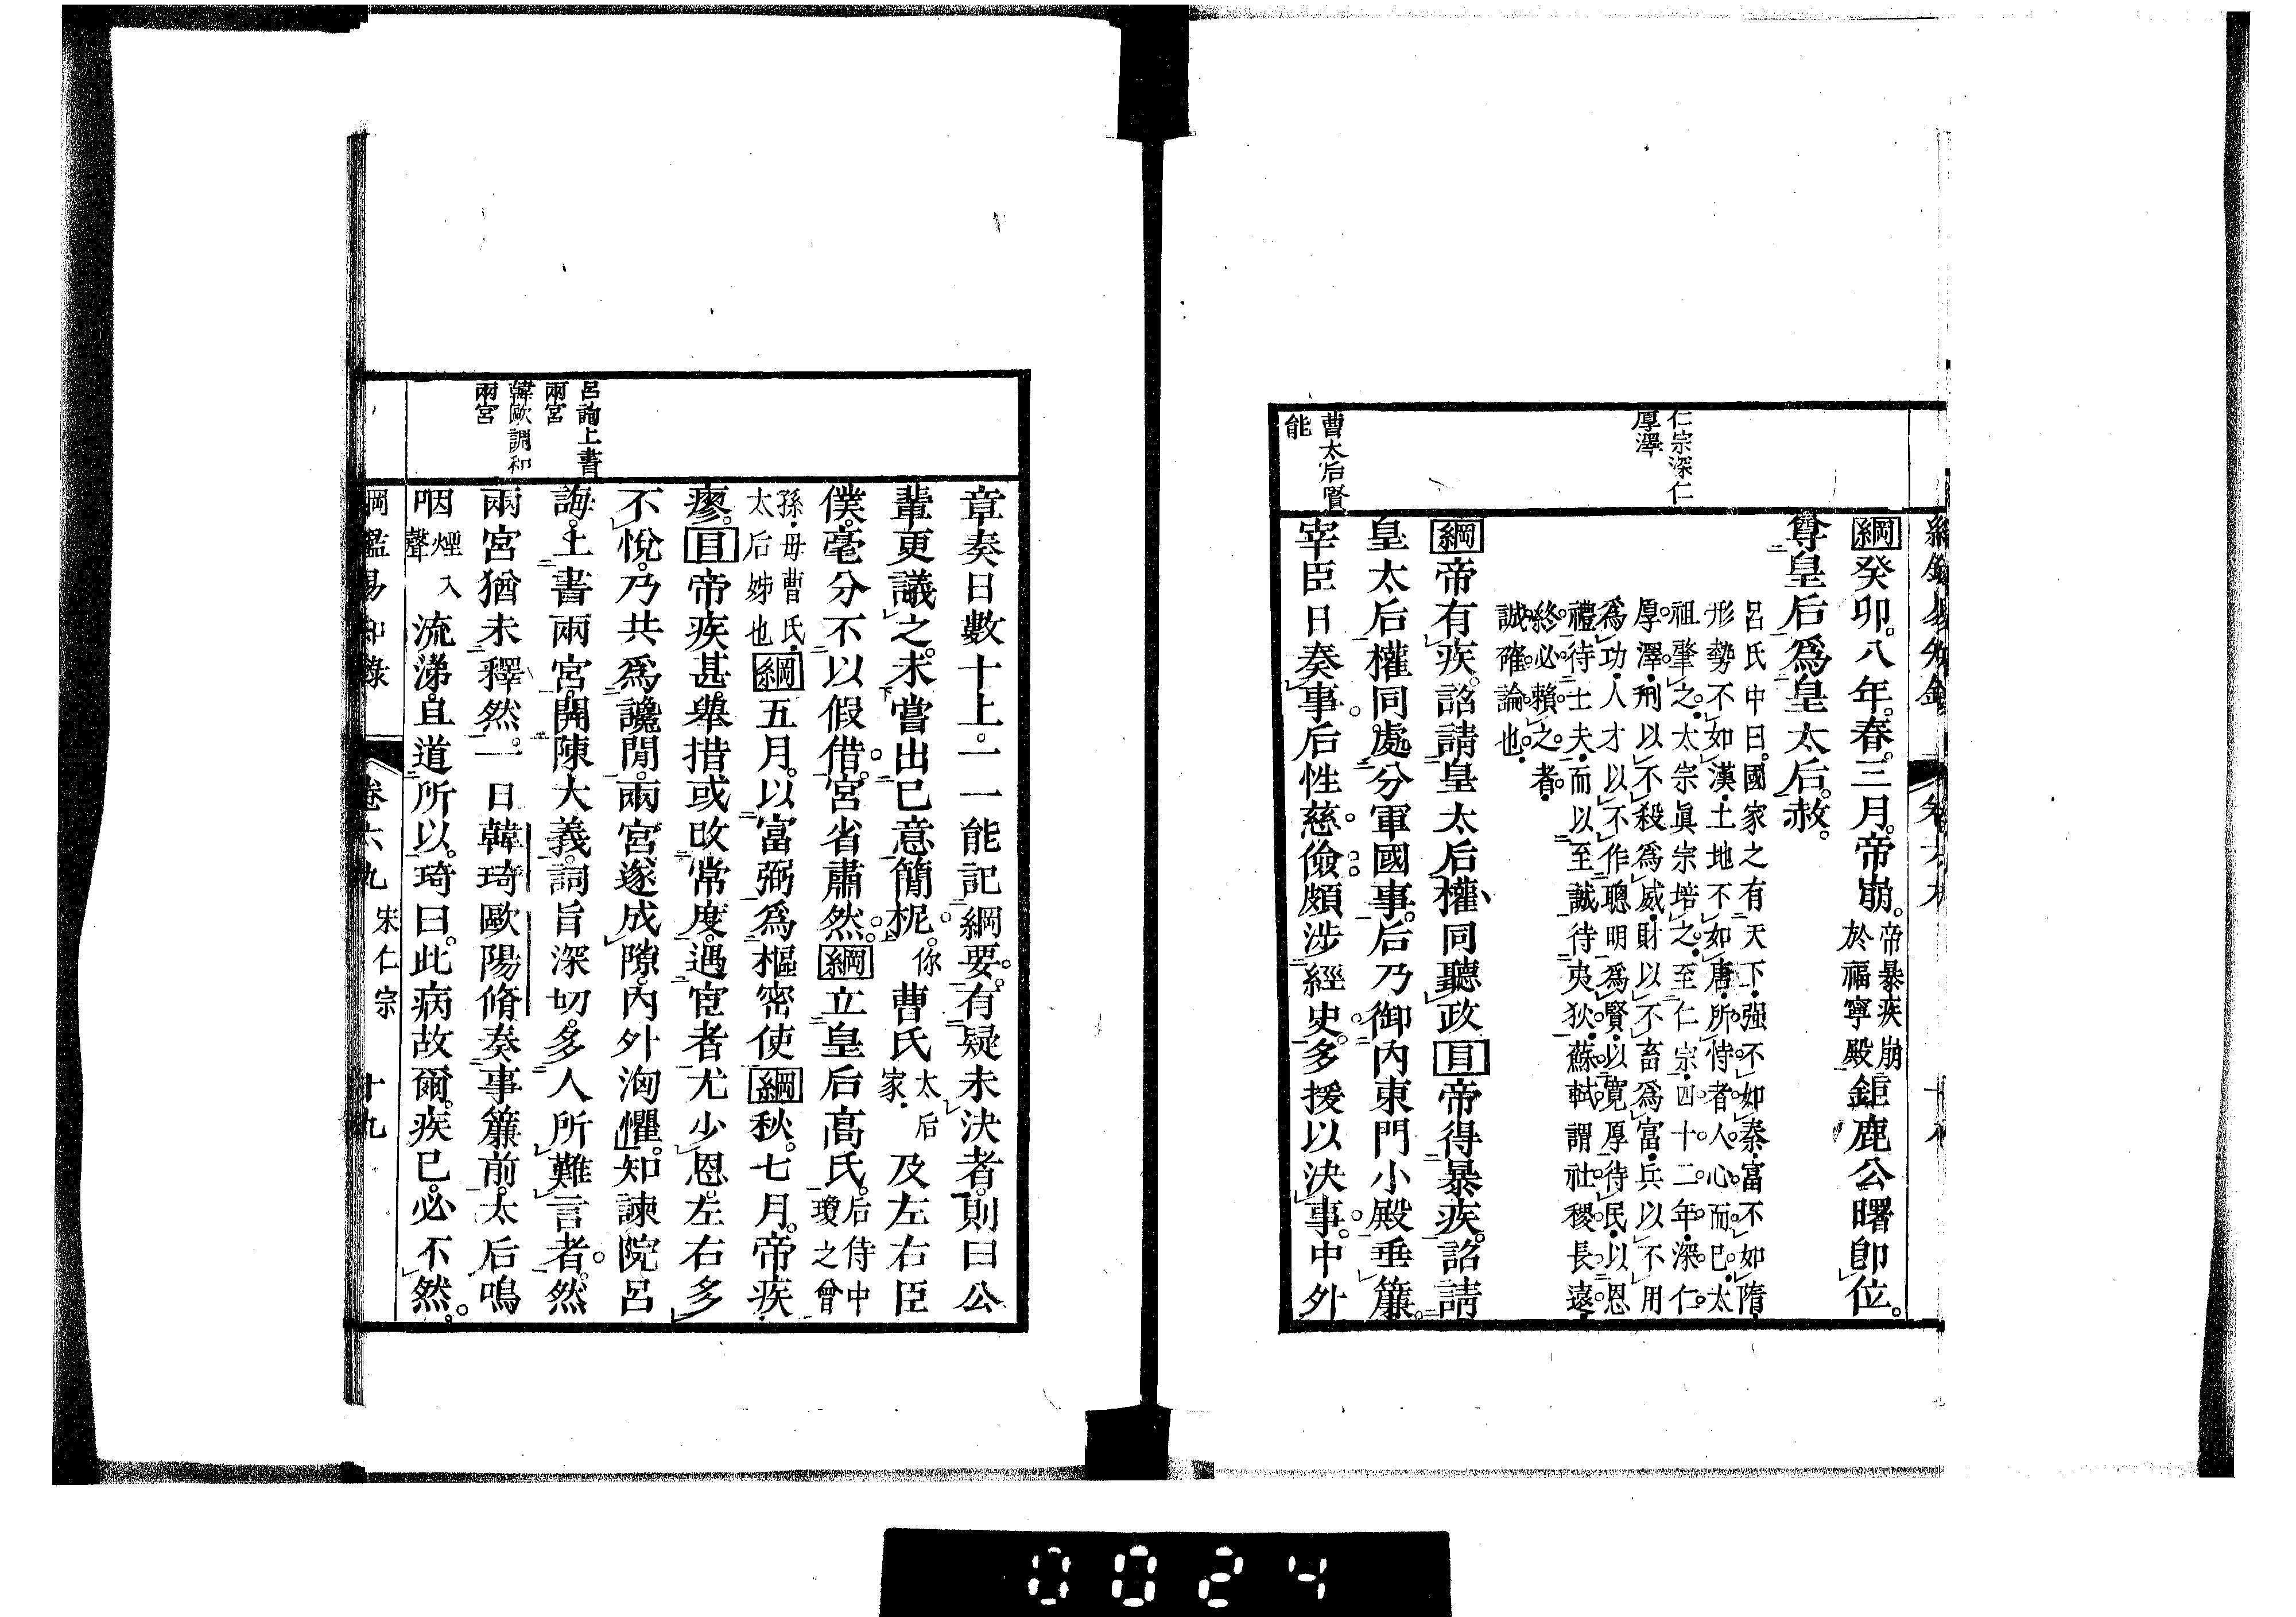 仁宗深仁
厚澤
曹太后賢
能
綱癸卯。八年。春。三月。帝崩。帝暴疾崩
於福寧殿鉅鹿公曙卽位。
尊皇后爲皇太后。赦。
呂氏中曰。國家之有天下。強不如秦。富不如隋。
形勢不如漢。土地不如唐。所恃者人心而已。太
祖肇之。太宗眞宗培之。至仁宗。四十二年。深仁
厚澤。刑以不殺爲威。財以不畜爲富。兵以不用
爲功。人才以不作聰明爲賢。以寬厚待民。以恩
禮待士夫。而以至誠待夷狄。蘇軾謂社稷長遠。
終必賴之者。
誠確論也。
綱帝有疾。詔請皇太后權同聽政目帝得暴疾。詔請
皇太后權同處分軍國事。后乃御內東門小殿垂簾。
宰臣日奏事。后性慈儉。頗涉經史。多援以決事。中外
呂誨上書
兩宮
韓歐調和
兩宮
章奏日數十上。一一能記綱要。有疑未決者。則曰公
輩更議之。未嘗出己意簡柅。你 曹氏太后
家及左右臣
僕。毫分不以假借。宮省肅然。綱立皇后高氏。后侍中
瓊之曾
孫。母曹氏。
太后姊也綱五月。以富弼爲樞密使綱秋。七月。帝疾
瘳。目帝疾甚。舉措或改常度。遇宦者尤少恩。左右多
不悅。乃共爲讒閒。兩宮遂成隙。內外洶懼。知諫院呂
誨。上書兩宮。開陳大義。詞旨深切。多人所難言者。然
兩宮猶未釋然。一日韓琦歐陽脩奏事簾前。太后嗚
咽煙入
聲流涕。且道所以。琦曰。此病故爾。疾已。必不然。
綱鑑易知錄 卷六九 宋仁宗 十九